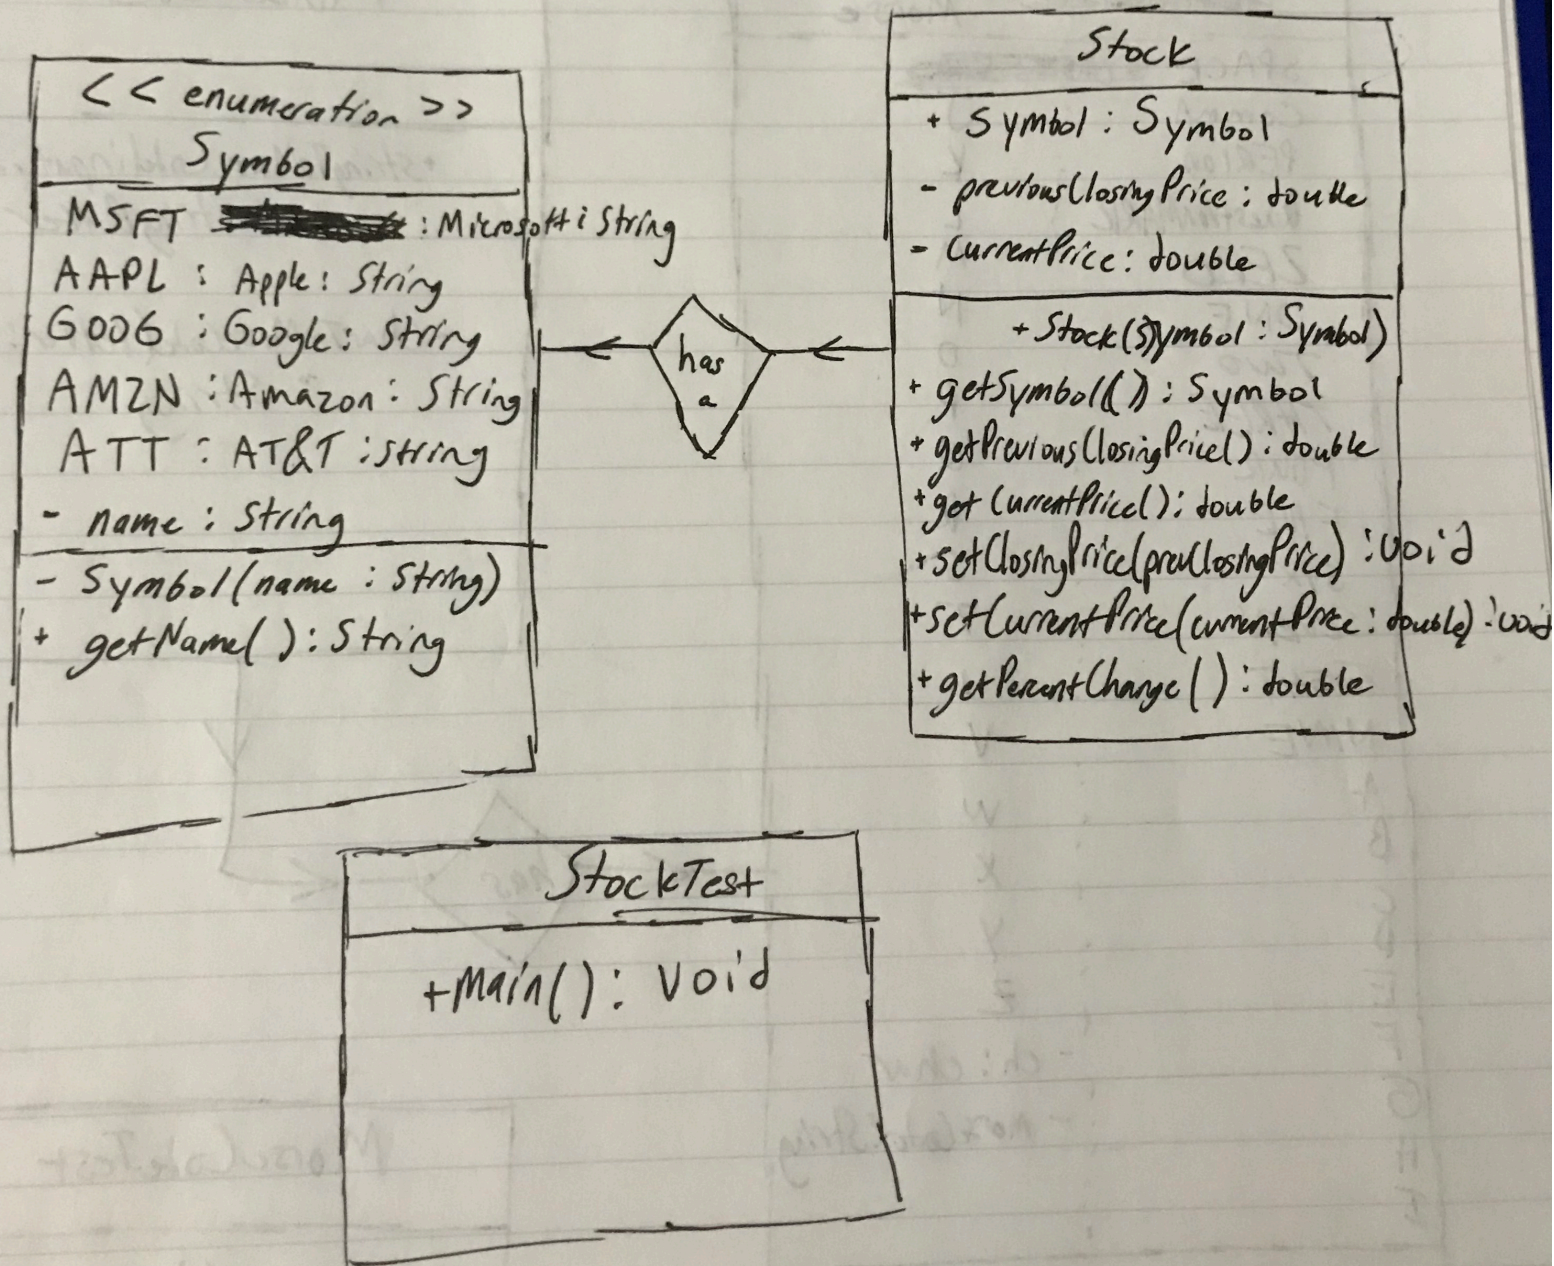 << enumeration >>
Symbol
MSFT : Microsoft : String
AAPL : Apple : String
GOOG : Google : String
AMZN : Amazon : String
ATT : AT&T : String
- name : String
- Symbol(name : String)
+ getName( ) : String
has
a
Stock
+ Symbol : Symbol
- previousClosingPrice : double
- currentPrice : double
+ Stock(Symbol : Symbol)
+ getSymbol() : Symbol
+ getPreviousClosingPrice() : double
+ getCurrentPrice() : double
+ setClosingPrice(prevClosingPrice) : void
+ setCurrentPrice(currentPrice : double) : void
+ getPercentChange ( ) : double
StockTest
+main() : void